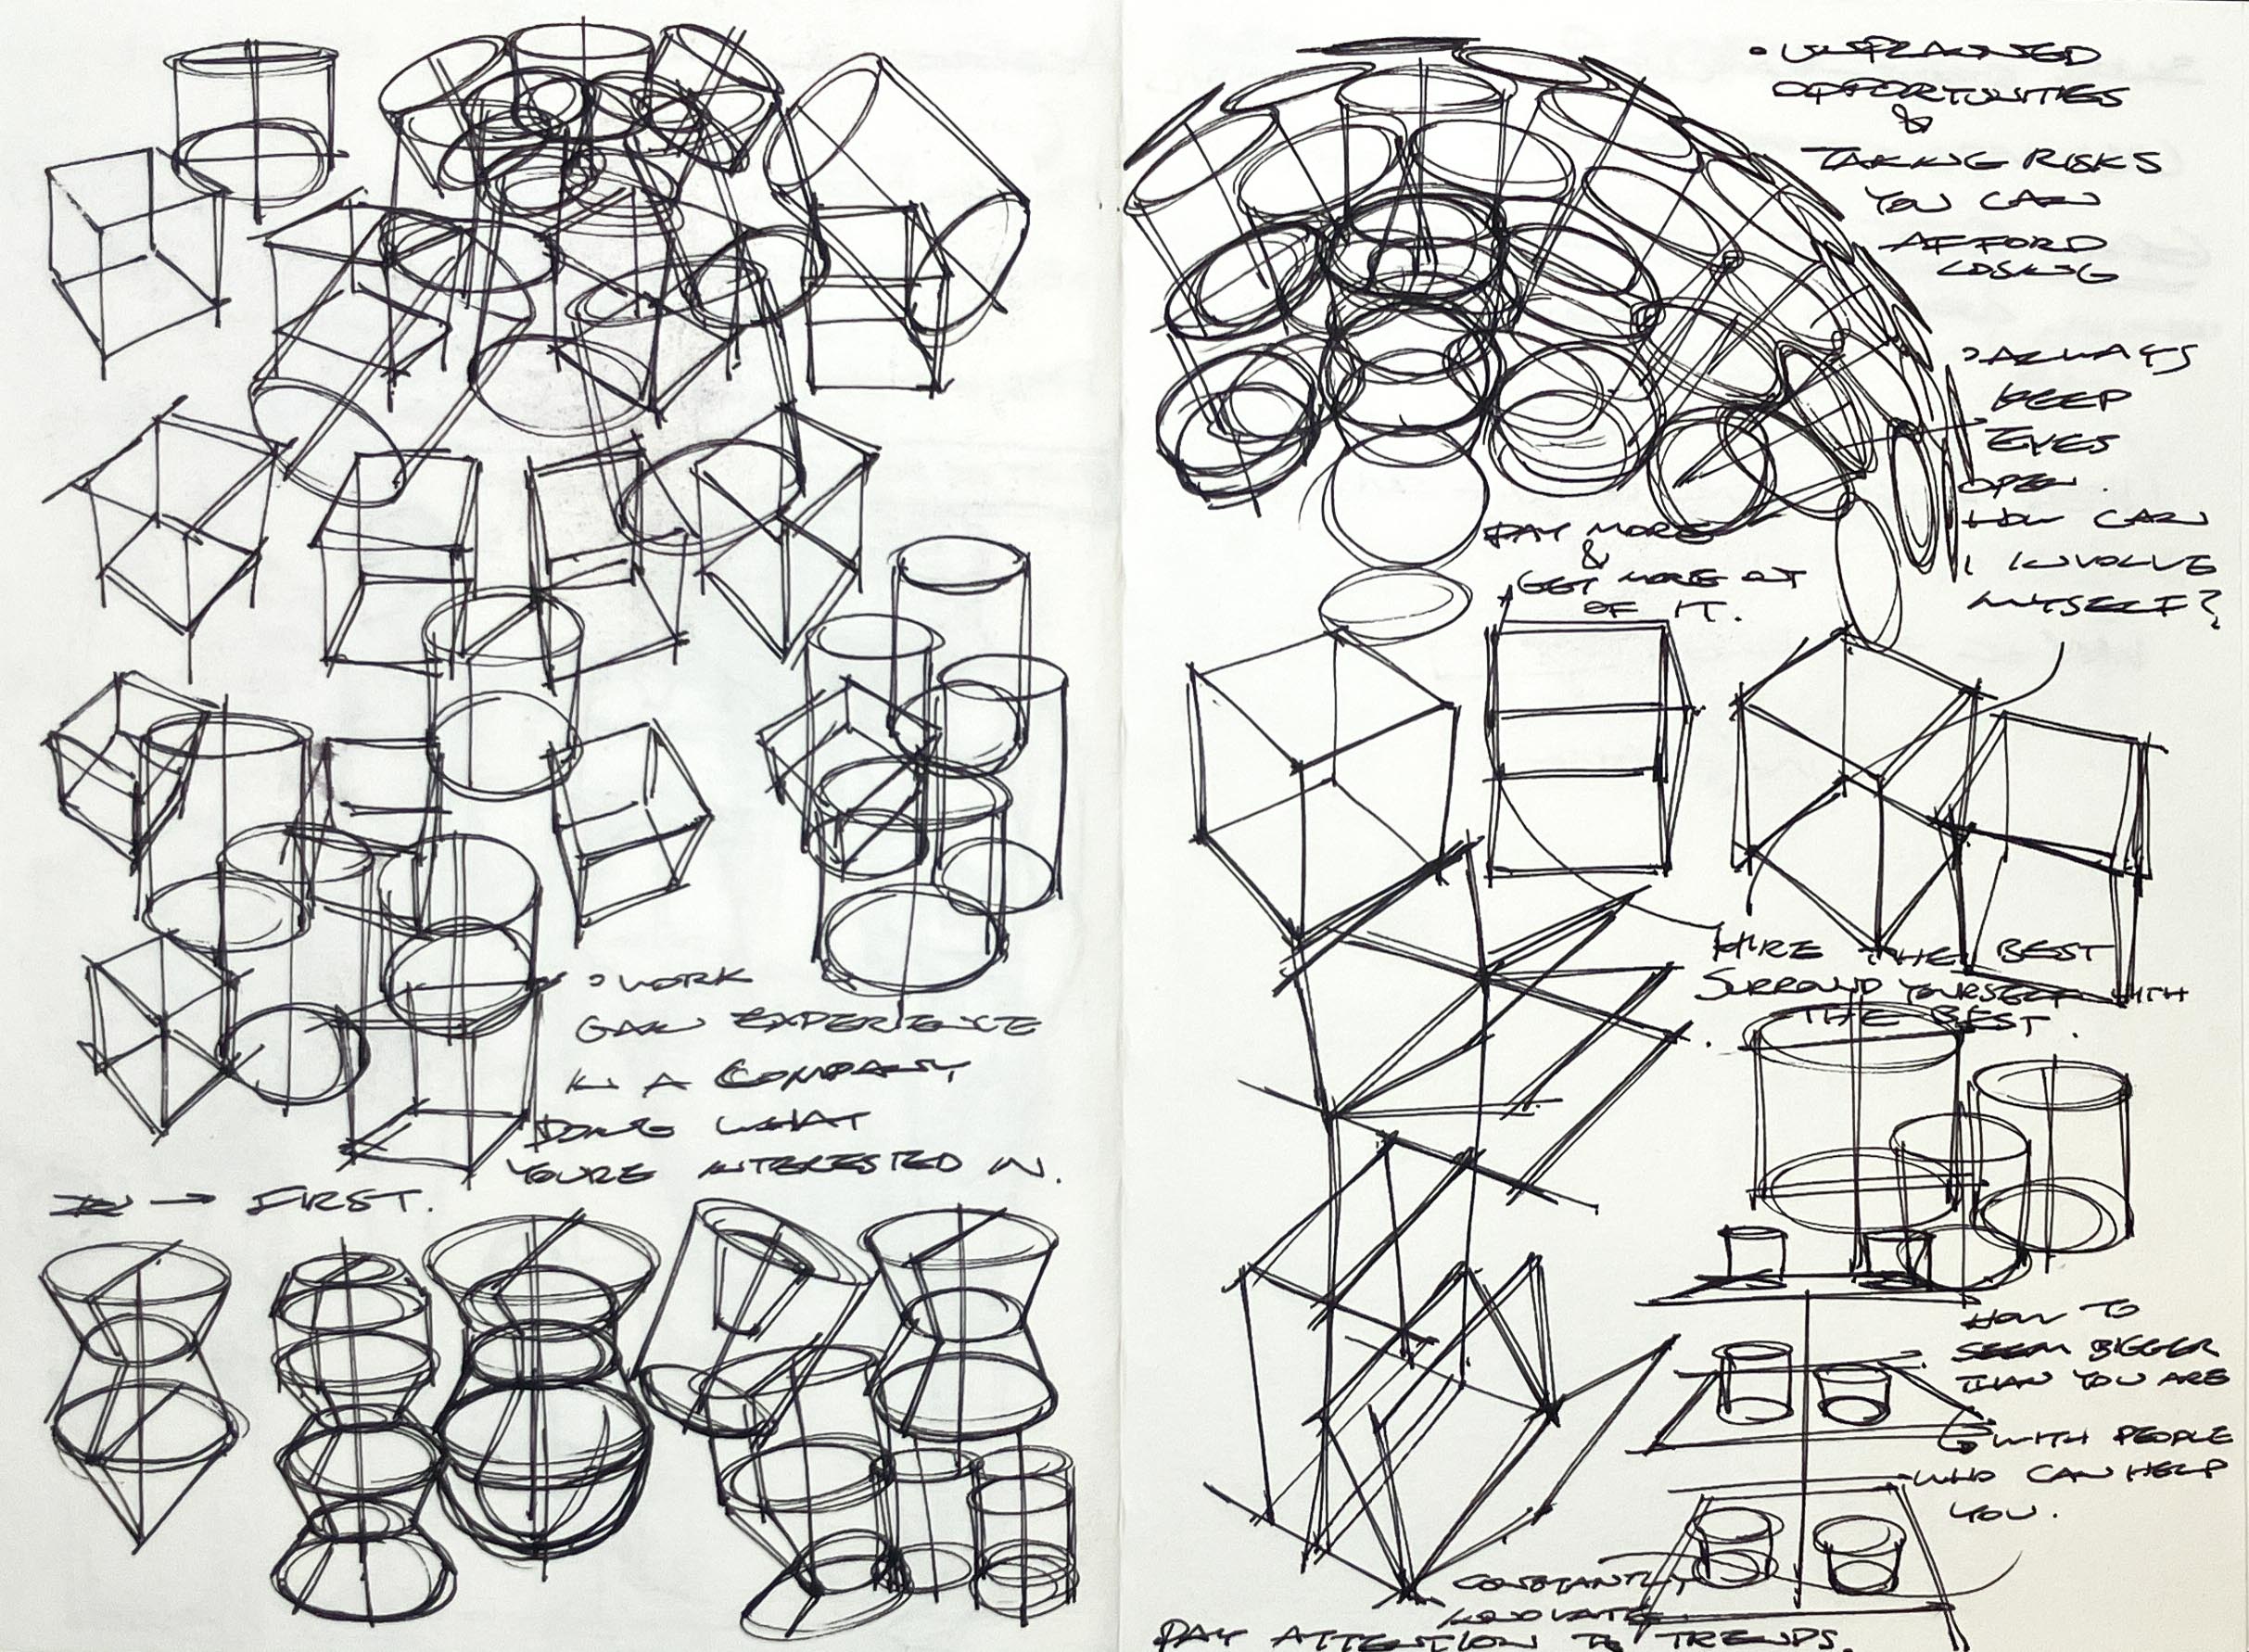 • WORK
GAIN EXPERIENCE
IN A COMPANY
DOING WHAT
YOU'RE INTERESTED IN.
→ FIRST.
• UNPLANNED
OPPORTUNITIES
&
TAKING RISKS
YOU CAN
AFFORD
LOSING
• ALWAYS
KEEP
EYES
OPEN.
HOW CAN
I INVOLVE
MYSELF?
PAY MORE
&
GET MORE OUT
OF IT.
HIRE THE BEST
SURROUND YOURSELF WITH
THE BEST.
HOW TO
SEEM BIGGER
THAN YOU ARE
↳ WITH PEOPLE
WHO CAN HELP
YOU.
CONSTANTLY
INNOVATE.
PAY ATTENTION TO TRENDS.